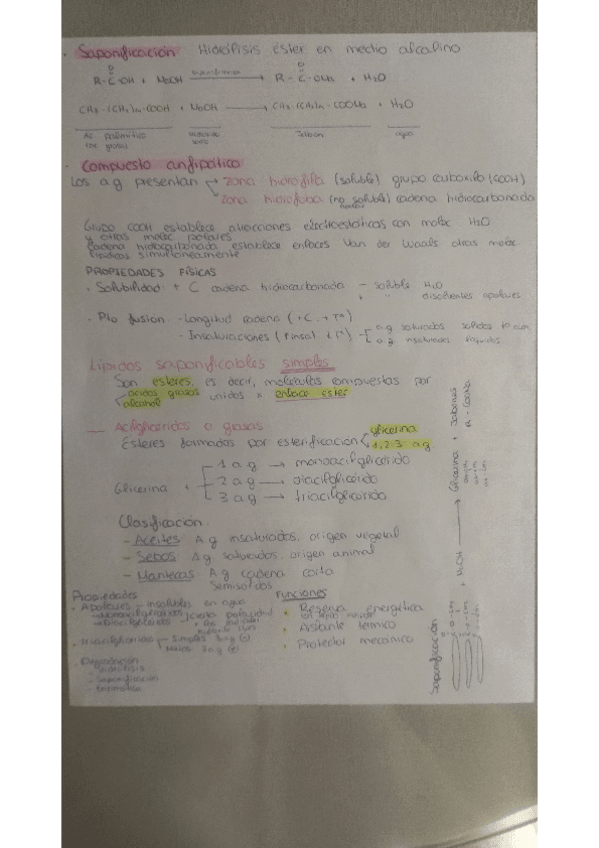 · Saponificación Hidrólisis éster en medio alcalino
O O
R-C-OH + NaOH → R-C-ONa + H2O
CH3-(CH2)n-COOH + NaOH → CH3-(CH2)n-COONa + H2O
Ác. palmítico Jabón agua
(ác. graso)
· Compuesto anfipático
Los a.g presentan zona hidrófila (soluble) grupo carboxilo (COOH)
zona hidrófoba (no soluble) cadena hidrocarbonada
Grupo COOH establece atracciones electroestáticas con moléc H2O
y otras moléc polares
Cadena hidrocarbonada establece enlaces Van der Waals otras moléc
lipídicas simultáneamente
PROPIEDADES FÍSICAS
· Solubilidad: + C cadena hidrocarbonada - soluble H2O
+ " disolventes apolares
· Pto fusión - Longitud cadena (+C, +Tª)
- Insaturaciones (+insat ↓Tª) a.g saturados sólidos
a.g insaturados líquidos
Lípidos saponificables simples
Son ésteres, es decir, moléculas compuestas por
ácidos grasos unidos x enlace éster
alcohol
Acilglicéridos o grasas
Ésteres formados por esterificación glicerina
1,2,3 a.g
1 a.g → monoacilglicérido
Glicerina + 2 a.g → diacilglicérido
3 a.g → triacilglicérido
Clasificación
- Aceites A.g insaturados, origen vegetal
- Sebos A.g saturados, origen animal
- Mantecas A.g cadena corta
Semisólidos
Propiedades
· Apolares - insolubles en agua
- Monoacilglicéridos cierta polaridad
- Diacilglicéridos
· Triacilglicéridos - Simples 3 a.g (=)
Mixtos 3 a.g (≠)
· Degradación
- hidrólisis
- Saponificación
Funciones
· Reserva energética
· Aislante térmico
· Protector mecánico
Saponificación
+ NaOH → Glicerina + Jabones
R-COONa